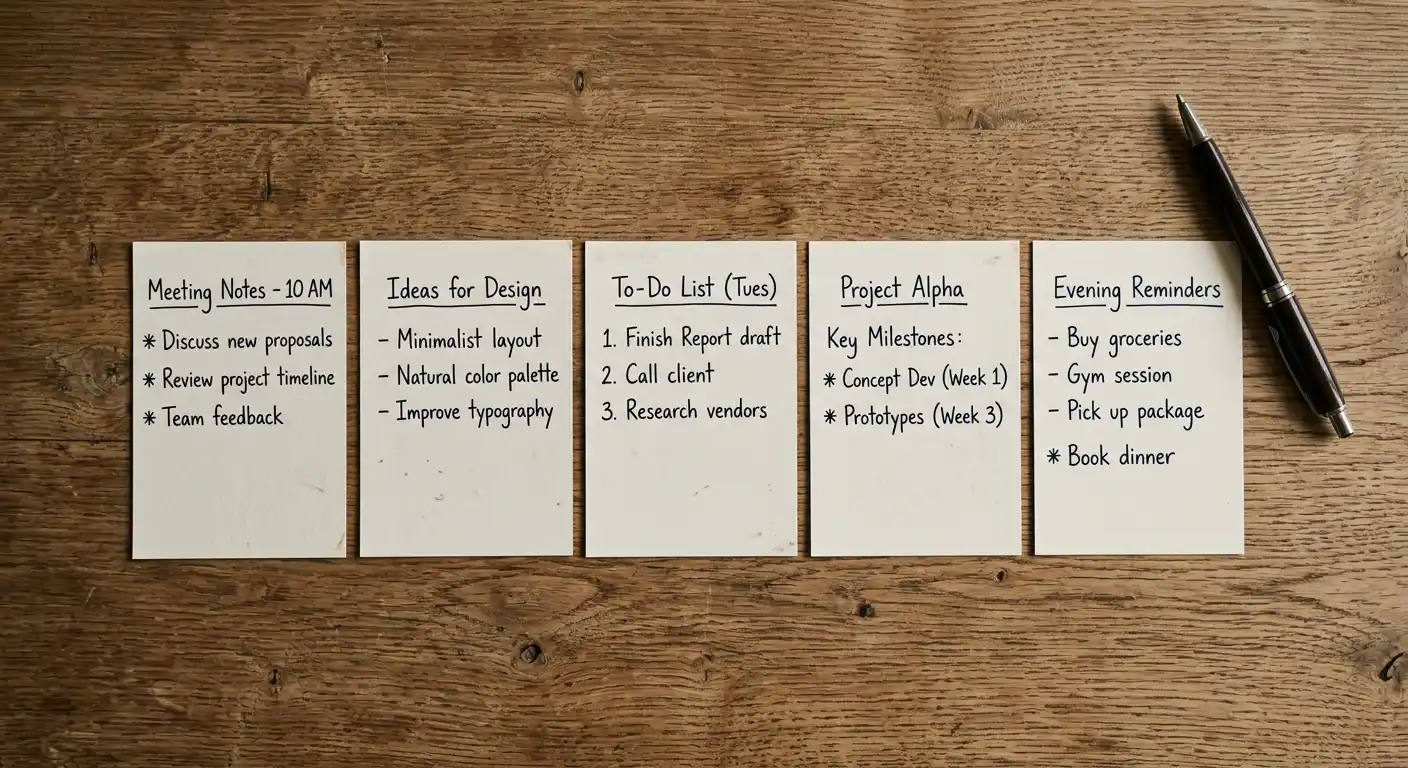 Meeting Notes - 10 AM
* Discuss new proposals
* Review project timeline
* Team feedback
Ideas for Design
- Minimalist layout
- Natural color palette
- Improve typography
To-Do List (Tues)
1. Finish Report draft
2. Call client
3. Research vendors
Project Alpha
Key Milestones:
* Concept Dev (Week 1)
* Prototypes (Week 3)
Evening Reminders
- Buy groceries
- Gym session
- Pick up package
* Book dinner